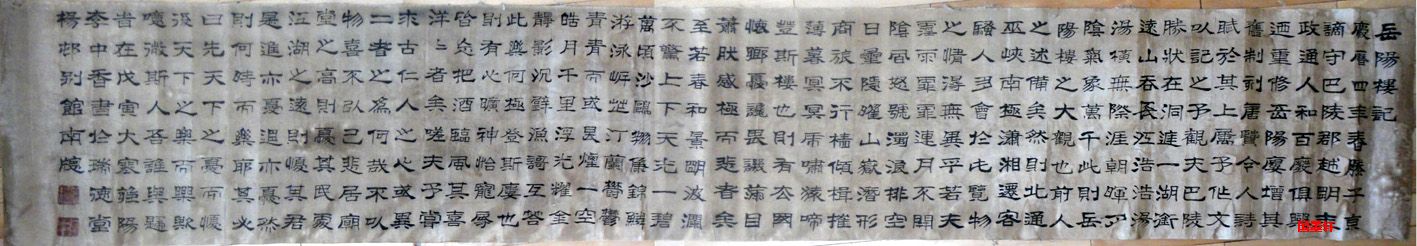 岳陽樓記
慶曆四年春滕子京
謫守巴陵郡越明年
政通人和百廢俱興
迺重修岳陽樓增其
舊制刻唐賢今人詩
賦於其上屬予作文
以記之予觀夫巴陵
勝狀在洞庭一湖銜
遠山吞長江浩浩湯
湯橫無際涯朝暉夕
陰氣象萬千此則岳
陽樓之大觀也前人
之述備矣然則北通
巫峽南極瀟湘遷客
騷人多會於此覽物
之情得無異乎若夫
霪雨霏霏連月不開
陰風怒號濁浪排空
日星隱耀山嶽潛形
商旅不行檣傾楫摧
薄暮冥冥虎嘯猿啼
登斯樓也則有去國
懷鄉憂讒畏譏滿目
蕭然感極而悲者矣
至若春和景明波瀾
不驚上下天光一碧
萬頃沙鷗翔集錦鱗
游泳岸芷汀蘭鬱鬱
青青而或長煙一空
皓月千里浮光耀金
靜影沉璧漁謌互答
此樂何極登斯樓也
則有心曠神怡寵辱
皆忘把酒臨風其喜
洋洋者矣嗟夫予嘗
求古仁人之心或異
二者之為何哉不以
物喜不以己悲居廟
堂之高則憂其民處
江湖之遠則憂其君
是進亦憂退亦憂然
則何時而樂耶其必
曰先天下之憂而憂
後天下之樂而樂歟
噫微斯人吾誰與歸
歲在戊寅大寒雒陽
李中香書於瑞德堂
楊邨別館南窗